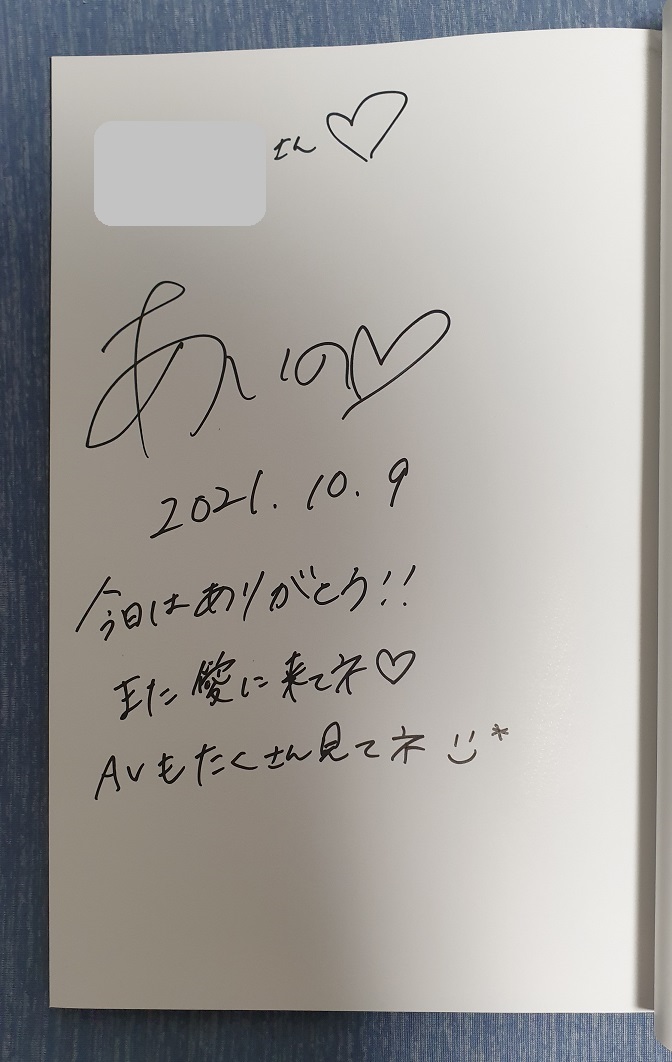 さん♡
あいの♡
2021.10.9
今日はありがとう!!
また愛に来てネ♡
AVもたくさん見てネ